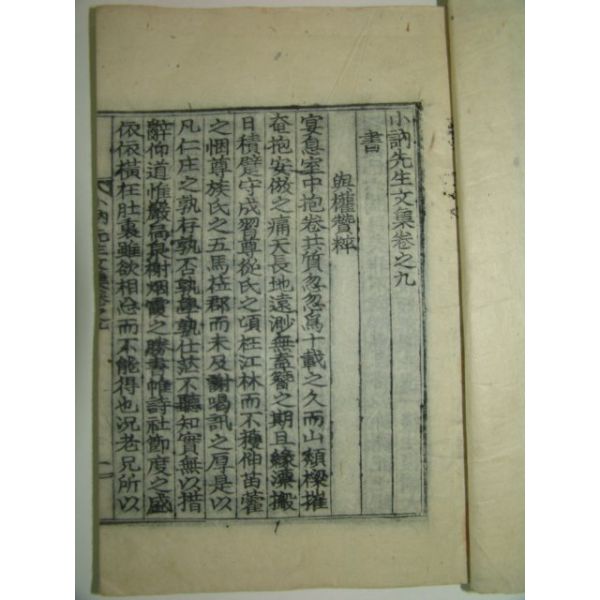 小訥先生文集卷之九
書
與權贊粹
宴息室中抱卷共質忽忽焉十載之久而山頹樑摧
奄抱安倣之痛天長地遠渺無奮響之期且緣濂搬
日積蹙守成習尊從氏之頃枉江林而不獲伸苗藿
之悃尊族氏之五馬莅郡而未及謝喝訊之厚是以
凡仁庄之孰存孰否孰學孰仕茫不聽知實無以措
辭仰道惟嚴扃泉樹烟霞之勝書帷詩社卽度之盛
依依橫在肚裏雖欲相忘而不能得也況老兄所以
小訥先生文集卷之九
一